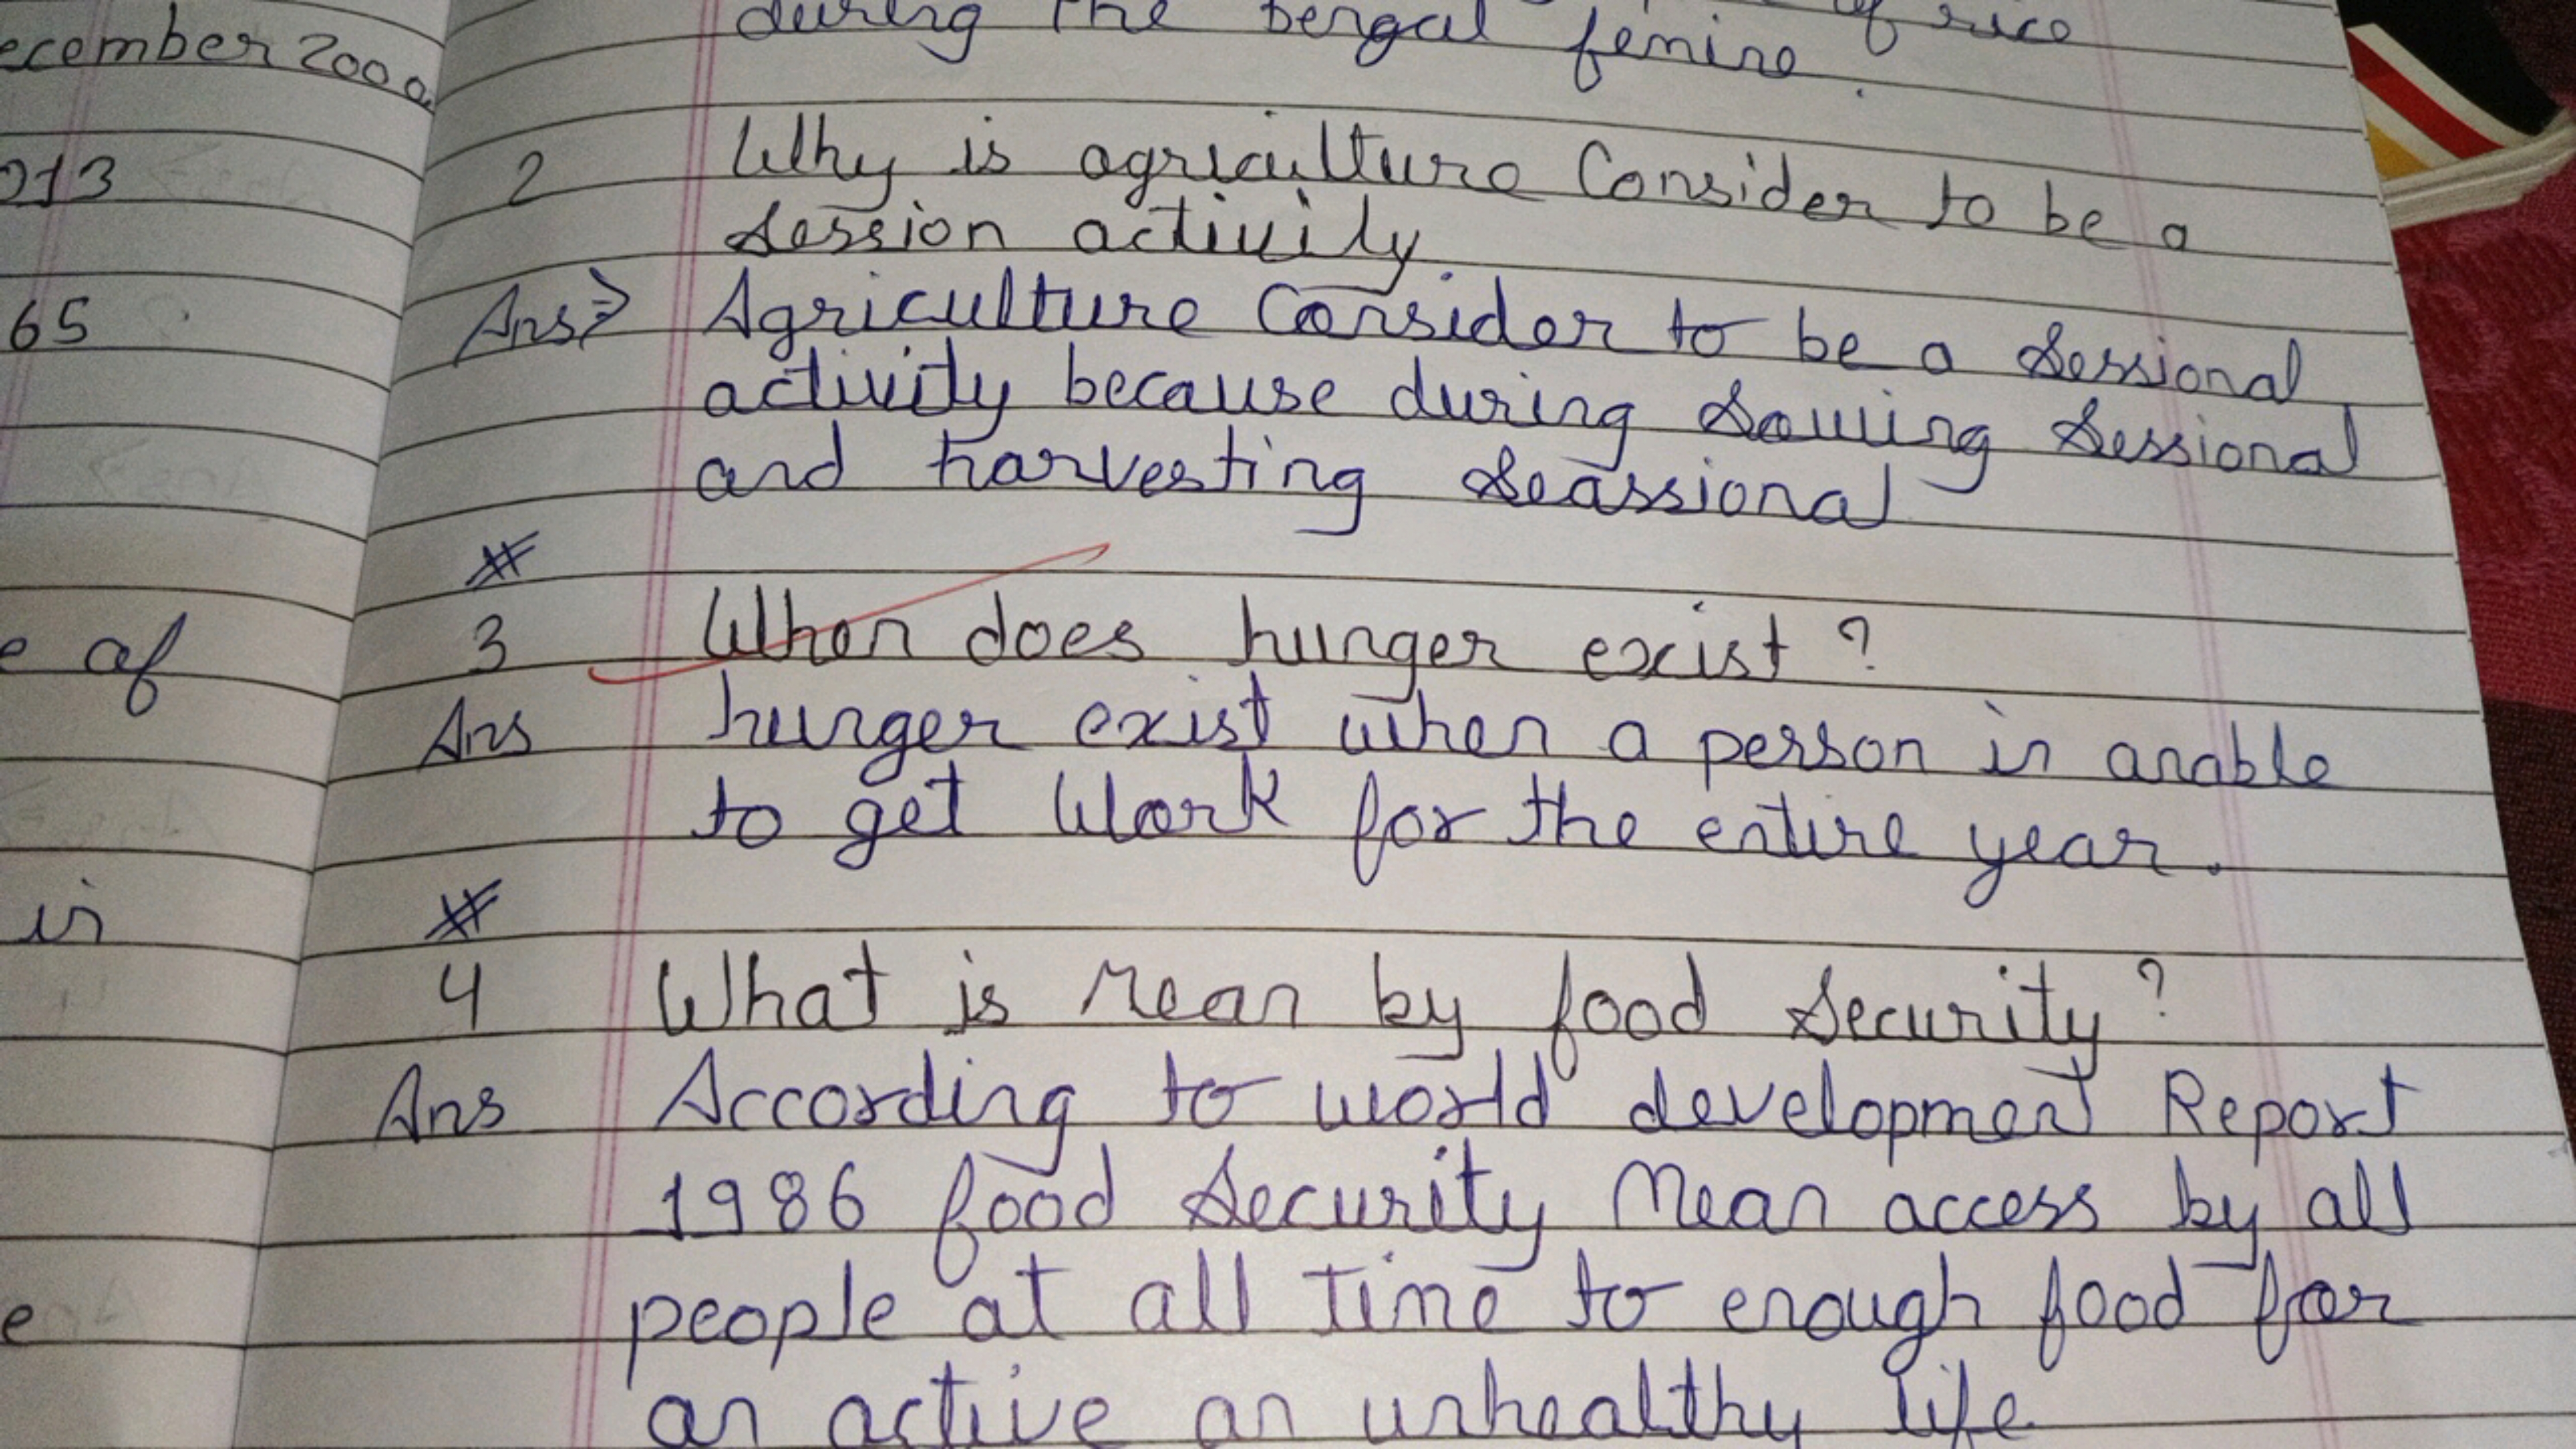 ecember 200
013
65
e of
in
e
of rice
during the bengal femine
2 Why is agriculture Consider to be a
session activity
Ans⇒ Agriculture Consider to be a sessional
activity because during sowing sessional
and harvesting seassional
#
3 When does hunger exist ?
Ans hunger exist when a person in anable
to get Work for the entire year.
#
4 What is Mean by food security ?
Ans According to world development Report
1986 food security Mean access by all
people at all time to enough food for
an active an unhealthy life